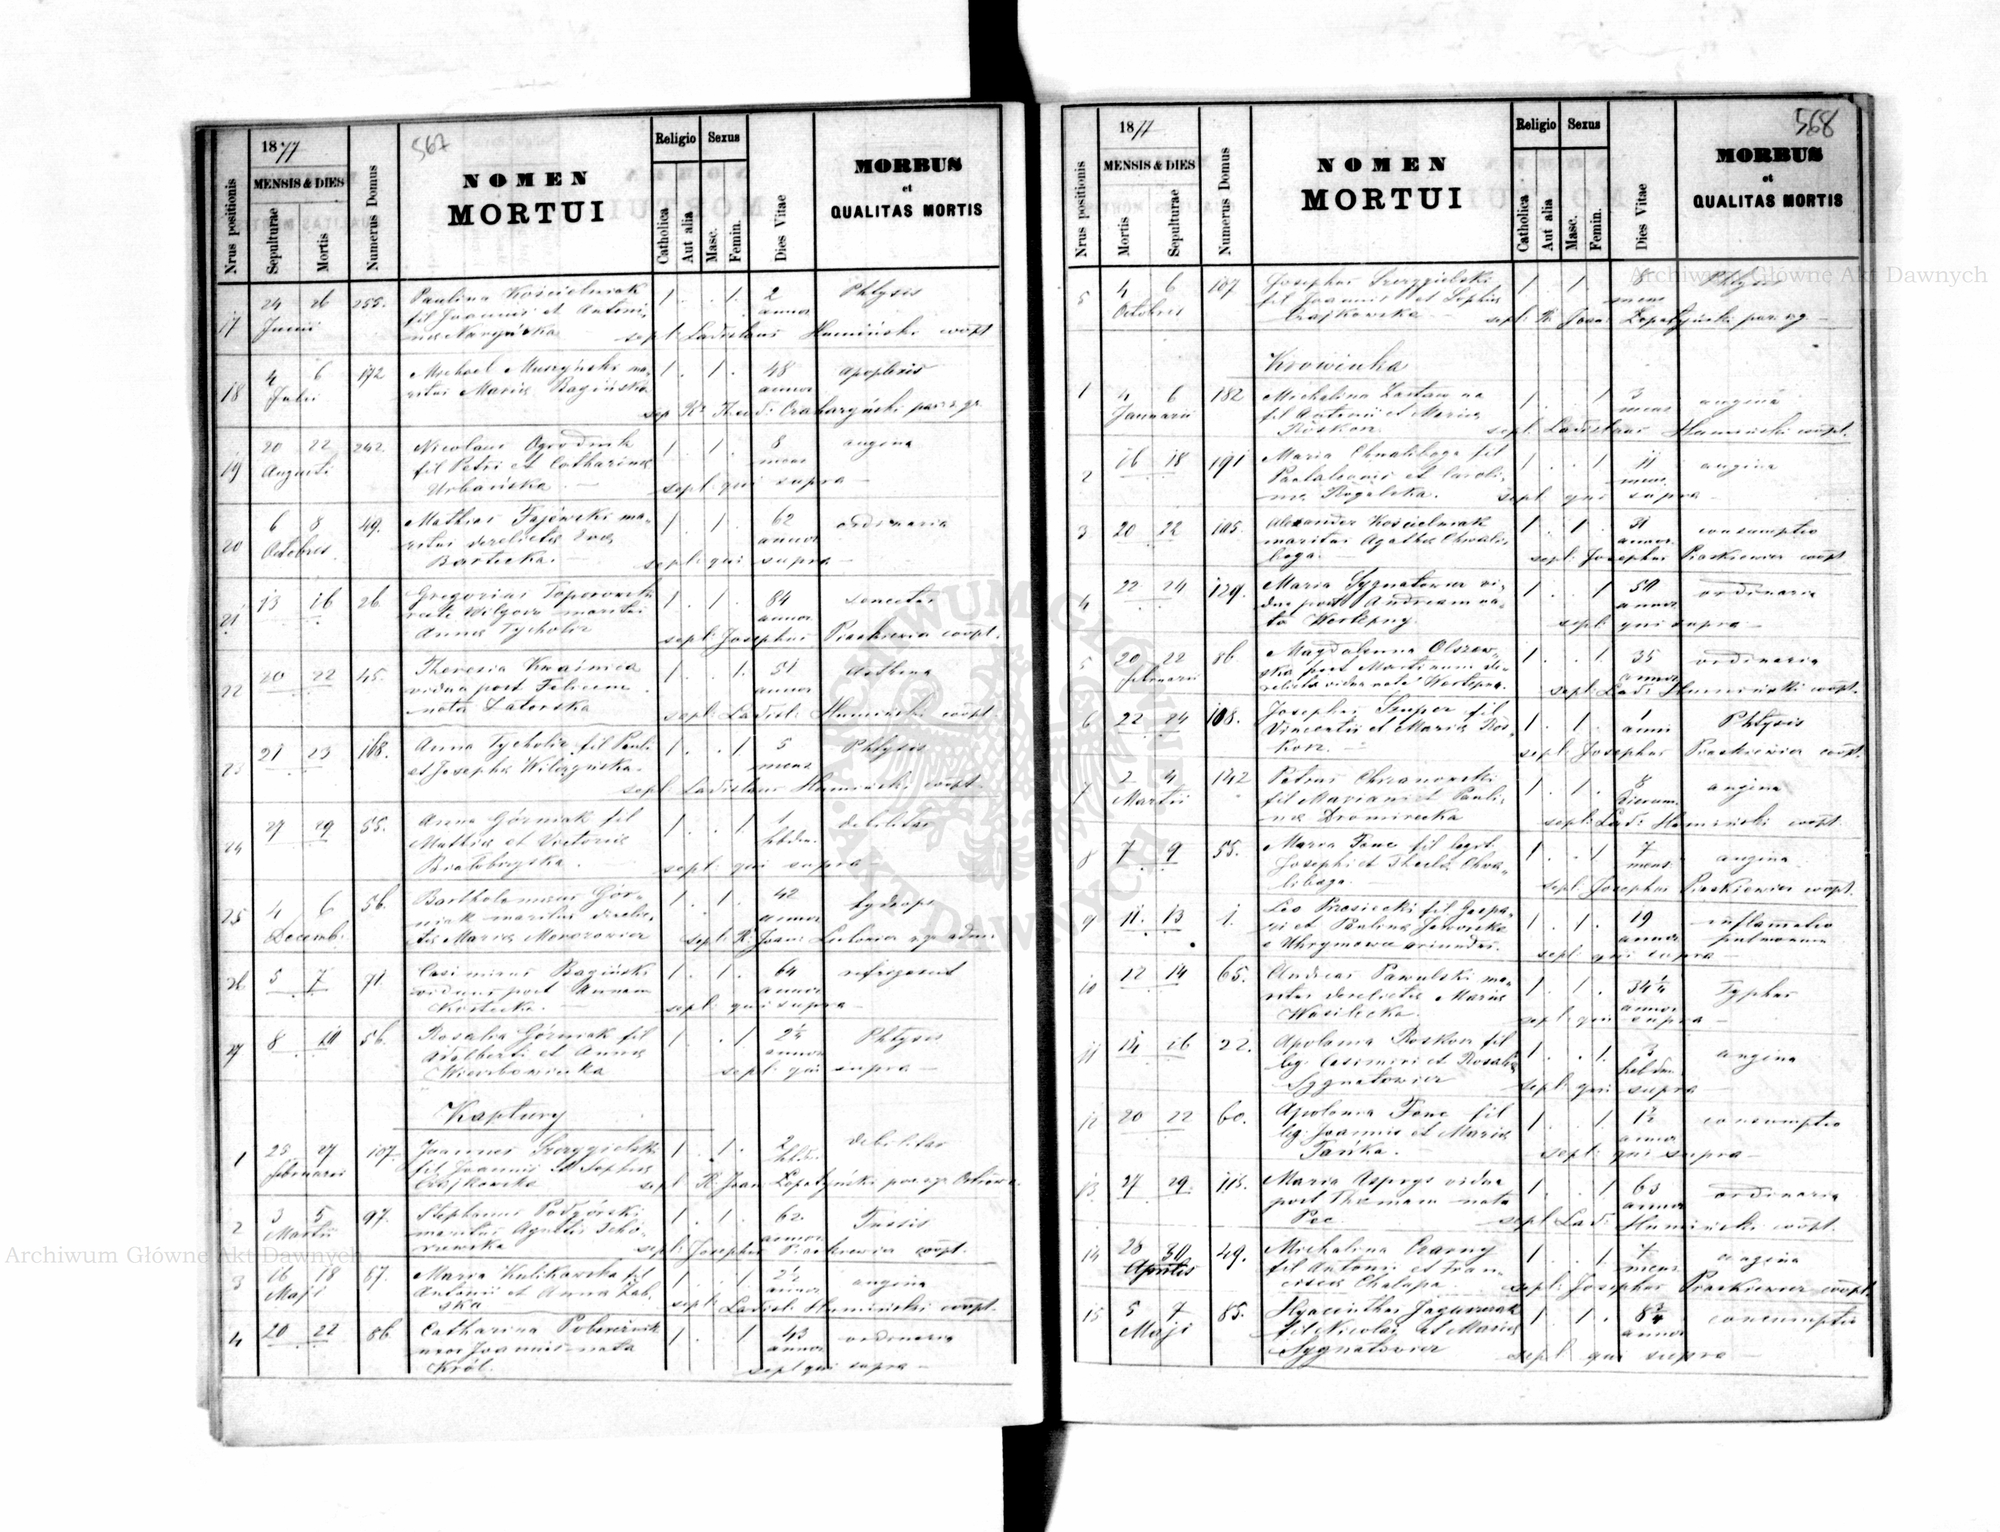 567
1877
Nrus positionis
MENSIS & DIES
Sepulturae
Mortis
Numerus Domus
NOMEN
MORTUI
Religio
Catholica
Aut alia
Sexus
Masc.
Femin.
Dies Vitae
MORBUS
et
QUALITAS MORTIS
17 24 26 255. Paulina Kościelniak 1 . . 1. 2 Phtysis
Junii fil Joannis et Antoni- annor
sept: Ladislaus Humiński coopt
18 4 6 172 Michael Muszyński ma- 1 . 1 . 48 apoplexis
Julii ritus Mariae Bagińska annor
19 20 22 242. Nicolaus Ogrodnik 1 . 1 . 8 angina
Augusti fil Petri et Catharinae mens
Urbańska. sept: qui supra
20 6 8 49. Mathias Fajewski ma- 1 . 1 . 62 ordinaria
Octobres ritus derelictus Evae annor
Bartecka. sept: qui supra
21 13 16 26. Gregorius 1 . 1 . 84 senectus
maritus annor
Anna Tycholiz sept: Josephus Piaskiewicz coopt.
22 20 22 45. Theresia Kwaśnica 1 . . 1. 51 Asthma
vidua post Felicem annor
nata Laterska sept: Ladisl: Humiński coopt
23 21 23 168. Anna Tycholiz fil Pauli 1 . . 1 5 Phtysis
et Josepha Wilczyńska. mens
sept Ladislaus Humiński coopt.
24 27 29 55. Anna Górniak fil 1 . . 1 1 debilitas
Mathiae et Victoriae hbdm.
Białobryska. sept: qui supra
25 4 6 56. Bartholomaeus Gór- 1 . 1 . 42 hydrops
Decemb: niak maritus derelic- annor
tus Mariae Morozowicz
26 5 7 71. Casimirus Bagiński 1 . 1 . 64
viduus post Annam annor
Kostecka. sept: qui supra
27 8 10 56. Rosalia Górniak fil 1 . . 1 2½ Phtysis
Adalberti et Annae annor
Wierzbowicka sept: qui supra
Kaptury
1 25 27 107. Joannes Szczygielski 1 . 1 . 2 debilitas
februarii fil Joannis et Sophiae hbd.
Czajkowska
2 3 5 97. Stephanus Podgórski 1 . 1 . 62. Tussis
Martii maritus Agnetis annor
sept: Josephus Piaskiewicz coopt.
3 16 18 67. Maria Kulikowska fil 1 . . 1 2½ angina
Maji Antonii et Anna Zab- annor
ska sept: Ladisl: Humiński coopt.
4 20 22 86. Catharina Pobereźnik 1 . . 1 43 ordinaria
uxor Joannis nata annor
Król. sept qui supra
568
1877
Nrus positionis
MENSIS & DIES
Mortis
Sepulturae
Numerus Domus
NOMEN
MORTUI
Religio
Catholica
Aut alia
Sexus
Masc.
Femin.
Dies Vitae
MORBUS
et
QUALITAS MORTIS
5 4 6 107 Josephus Szczygielski 1 . 1 . 8 Phtysis
Octobres fil Joannis et Sophiae mens
Czajkowska
Krowinka
1 4 6 182 Michalina 1 . . 1 3 angina
Januarii fil Antonii et Mariae mens
Roskosz. sept: Ladislaus Humiński coopt.
2 16 18 191 Maria Chwaliboga fil 1 . . 1 11 angina
Pantaleonis et Caroli- mens
nae Rogalska. sept: qui supra
3 20 22 105. Alexander Kościelniak 1 . 1 . 31 consumptio
maritus Agatha Chwali- annor
boga. sept: Josephus Piaskiewicz coopt
4 22 24 129. Maria Sygnatowicz vi- 1 . . 1 50 ordinaria
dua post Andream na- annor
ta Wertepny. sept: qui supra
5 20 22 86. Magdalenna Olszew- 1 . . 1 35 ordinaria
februarii ska post Martinum de- annor
relicta vidua nata Wertepna. sept: Lad: Humiński coopt.
6 22 24 108. Josephus Szuper fil 1 . 1 . 1 Phtysis
Vincentii et Mariae Ros- anni
kosz. sept: Josephus Piaskiewicz coopt.
7 2 4 142 Petrus Chrzanowski 1 . 1 . 8 angina
Martii fil Mariani et Pauli- dierum
nae Dromirecka sept: Lad: Humiński coopt.
8 7 9 55. Maria Fonc fil legit. 1 . . 1 7 angina
Josephi et Thecla Chwa- mens
liboga. sept: Josephus Piaskiewicz coopt.
9 11. 13 1. Leo Prosiecki fil Gaspa- 1 . 1 . 19 inflamatio
ri et Paulina Jaworska annor pulmonum
e Uhrynowce oriundus. sept: qui supra
10 12 14 65. Andreas Pawulski ma- 1 . 1 . 34¼ Typhus
ritus derelictus Mariae annor
Wasilecka. sept: qui supra
11 14 16 22. Apolonia Roskosz fil 1 . . 1. 3 angina
leg. Casimiri et Rosaliae hebdm.
Sygnatowicz sept: qui supra
12 20 22 60. Apolonia Fonc fil 1 . . 1 12 consumptio
leg: Joannis et Mariae annor
Tańka. sept: qui supra
13 27 29. 113. Maria Asprys vidua 1 . . 1 63 ordinaria
post Thomam nata annor
Pec. sept: Lad: Humiński coopt.
14 28 30 49. Michalina Czarny 1 . . 1 7 angina
Aprilis fil Antoni et Fran- mens
cisca Chalupa. sept: Josephus Piaskiewicz coopt.
15 5 7 85. Hyacinthus Jagusczak 1 . 1 . 8¾ consumptio
Maji fil Nicolai et Mariae annor
Sygnatowicz sept: qui supra
Archiwum Główne Akt Dawnych
Archiwum Główne Akt Dawnych
ARCHIWUM GŁÓWNE AKT DAWNYCH